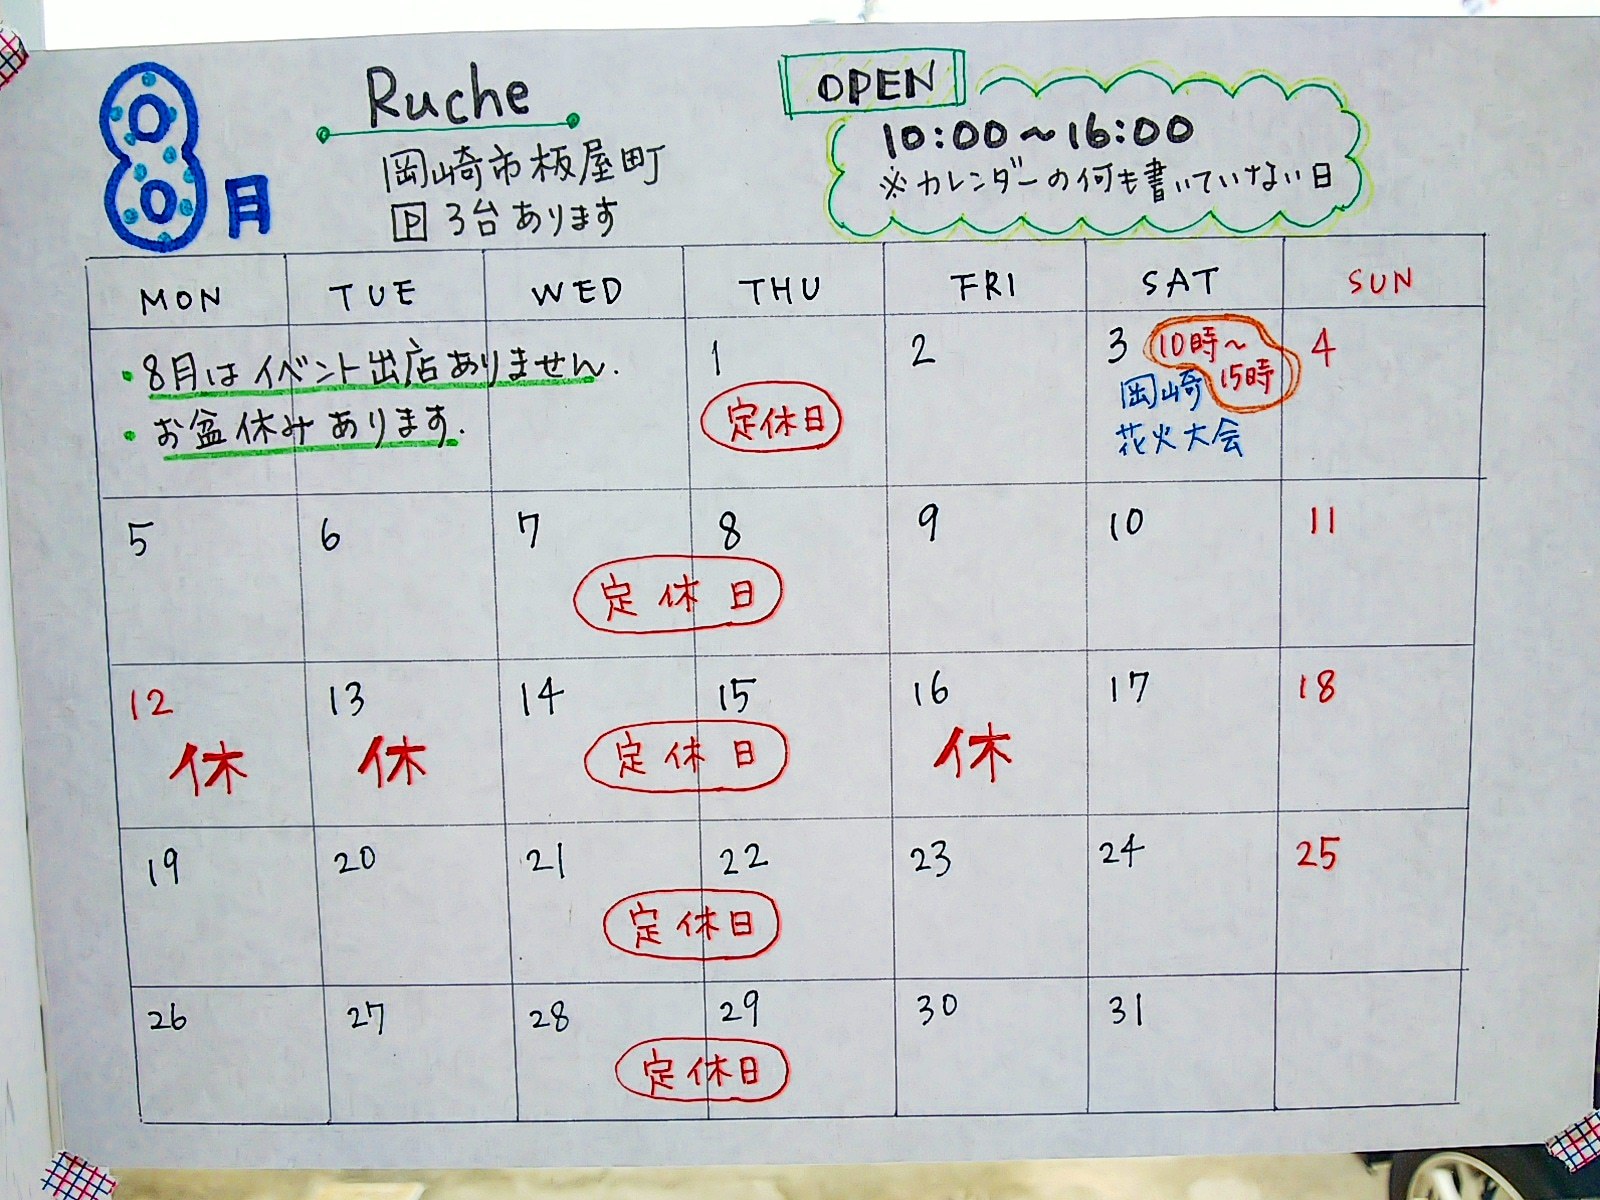 8月
Ruche
岡崎市板屋町
P 3台あります
OPEN
10:00～16:00
※カレンダーの何も書いていない日
MON TUE WED THU FRI SAT SUN
・8月はイベント出店ありません.
・お盆休みあります.
1 2 3 4
定休日
10時～
15時
岡崎
花火大会
5 6 7 8 9 10 11
定休日
12 13 14 15 16 17 18
休 休 定休日 休
19 20 21 22 23 24 25
定休日
26 27 28 29 30 31
定休日